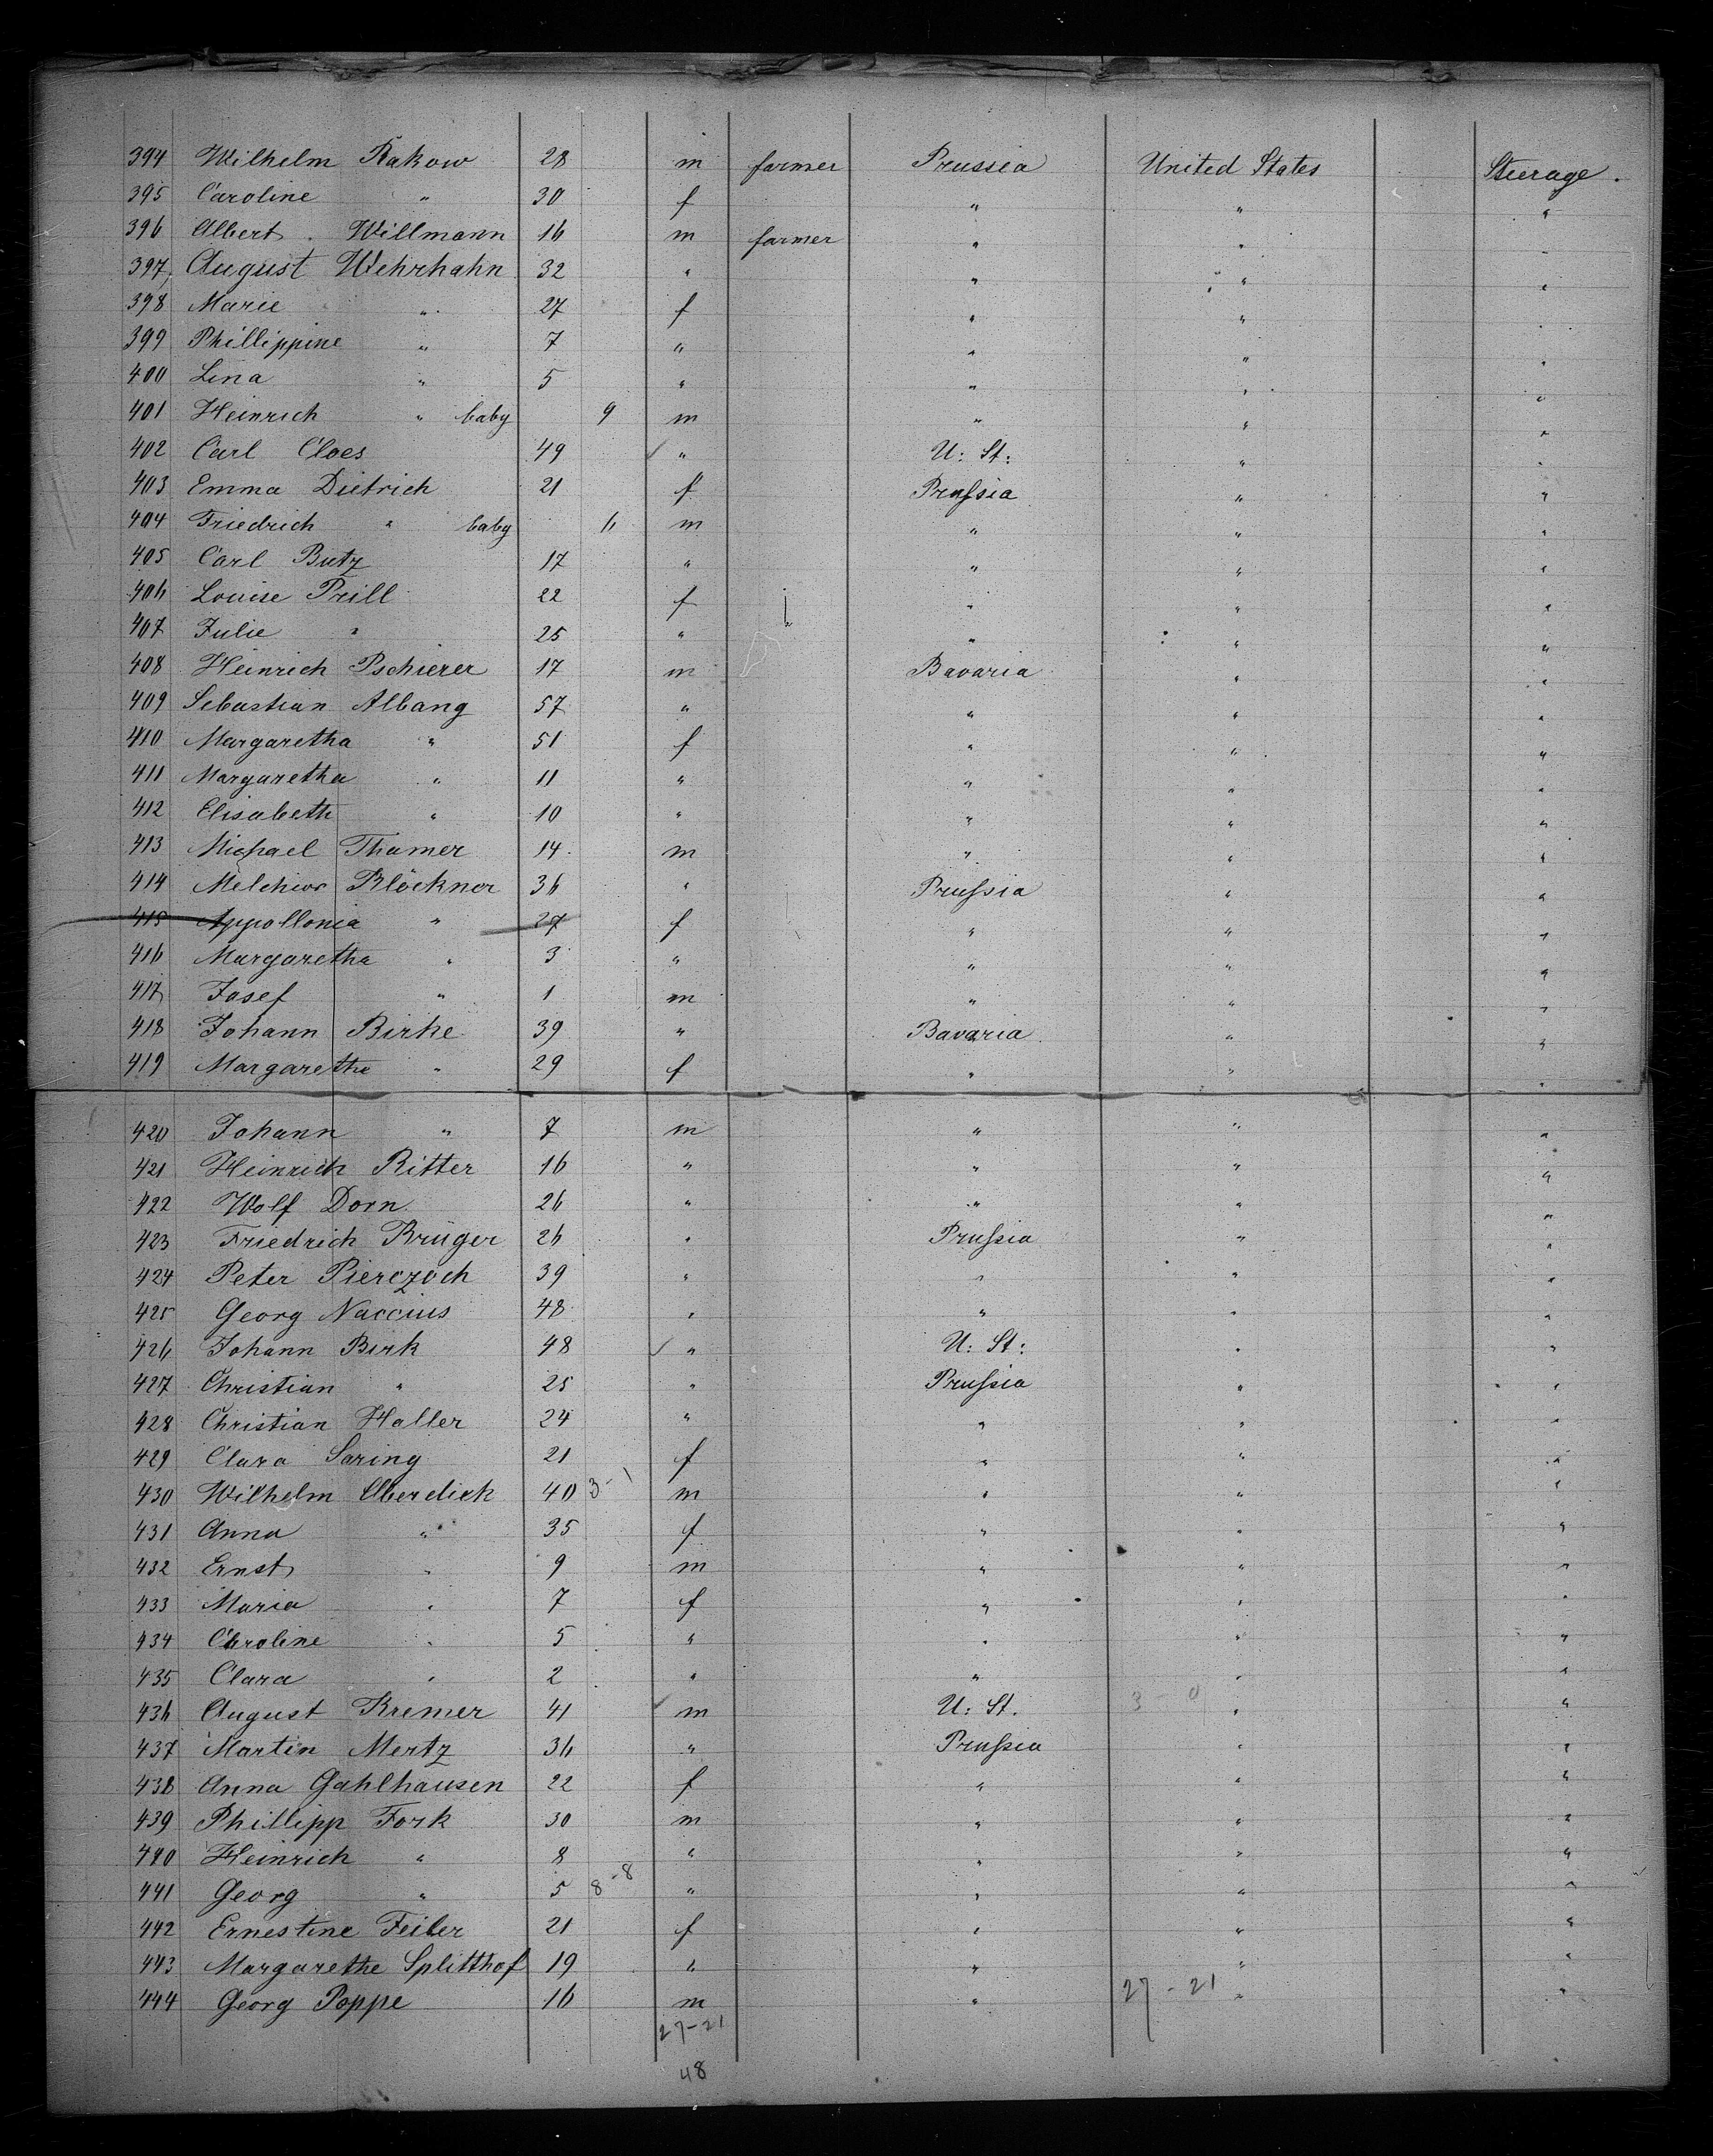 394 Wilhelm Rakow 28 m farmer Prussia United States Steerage.
395 Caroline " 30 f " " "
396 Albert Willmann 16 m farmer " " "
397 August Wehrhahn 32 " " " "
398 Marie " 27 f " " "
399 Phillippine " 7 " " " "
400 Lina " 5 " " " "
401 Heinrich " baby 9 m " " "
402 Carl Cloes 49 " U: St: " "
403 Emma Dietrich 21 f Prussia " "
404 Friedrich " baby 11 m " " "
405 Carl Butz 17 " " " "
406 Louise Prill 22 f " " "
407 Julie " 25 " " " "
408 Heinrich Pschierer 17 m Bavaria " "
409 Sebastian Albang 57 " " " "
410 Margaretha " 51 f " " "
411 Margaretha " 11 " " " "
412 Elisabeth " 10 " " " "
413 Michael Thamer 14 m " " "
414 Melchior Klöckner 36 " Prussia " "
415 Appollonia " 27 f " " "
416 Margaretha " 3 " " " "
417 Josef " 1 m " " "
418 Johann Birke 39 " Bavaria " "
419 Margarethe " 29 f " " "
420 Johann " 7 m " " "
421 Heinrich Ritter 16 " " " "
422 Wolf Dorn 26 " " " "
423 Friedrich Krüger 26 " Prussia " "
424 Peter Pierczoch 39 " " " "
425 Georg Naccius 48 " " " "
426 Johann Birk 48 " U: St: " "
427 Christian " 25 " Prussia " "
428 Christian Haller 24 " " " "
429 Clara Saring 21 f " " "
430 Wilhelm Oberdick 40 3-1 m " " "
431 Anna " 35 f " " "
432 Ernst " 9 m " " "
433 Maria " 7 f " " "
434 Caroline " 5 " " " "
435 Clara " 2 " " " "
436 August Kremer 41 m U: St. 3-0 " "
437 Martin Mertz 36 " Prussia " "
438 Anna Gahlhausen 22 f " " "
439 Phillipp Fork 30 m " " "
440 Heinrich " 8 " " " "
441 Georg " 5 8-8 " " " "
442 Ernestine Feiler 21 f " " "
443 Margarethe Splitthof 19 " " " "
444 Georg Poppe 16 m " 27-21 " "
27-21
48